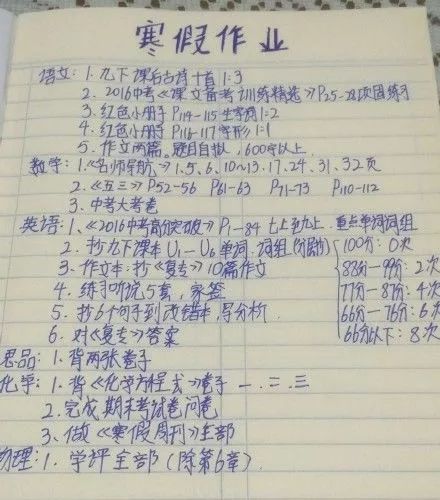 寒假作业
语文: 1. 九下课后古诗十首 1:3
2. 2016中考《课文备考训练精选》P25-28巩固练习
3. 红色小册子 P114-115 生字词 1:2
4. 红色小册子 P116-117 字形 1:1
5. 作文两篇, 题目自拟, 600字以上.
数学: 1.《名师导航》1.5.6.10~13.17.24.31.32页
2.《五三》P52-56 P61-63 P71-73 P110-112
3. 中考大考卷
英语: 1.《2016中考高分突破》P1-84 七上至九上. 重点单词词组
2. 抄九下课本 U1-U6 单词. 词组 100分: 0次
3. 作文本: 抄《复专》10篇作文 88分-99分: 2次
4. 练习听说5套, 家签 77分-87分: 4次
5. 抄6个句子到改错本, 写分析. 66分-76分: 6次
6. 对《复专》答案 66分以下: 8次
思品: 1. 背两张卷子
化学: 1. 背《化学方程式》卷子 一.二.三
2. 完成期末考试卷问卷
3. 做《寒假周刊》全部
物理: 1. 学评全部 (除第6章).